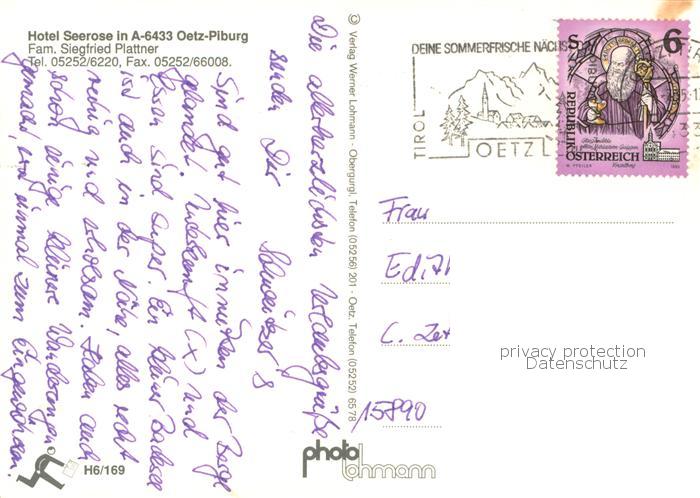 Hotel Seerose in A-6433 Oetz-Piburg
Fam. Siegfried Plattner
Tel. 05252/6220, Fax. 05252/66008.
Die allerherzlichsten Urlaubsgrüße
senden Dir
Schweitzer's
Sind gut hier inmitten der Berge
gelandet. Unterkunft (x) und
Essen sind super. Ein kleiner Badesee
ist auch in der Nähe, alles recht
ruhig und erholsam. Haben auch
schon einige kleinere Wanderungen
gemacht, erst einmal zum Eingewöhnen.
© Verlag Werner Lohmann - Obergurgl, Telefon (05256) 201 - Oetz, Telefon (05252) 6578
DEINE SOMMERFRISCHE NÄCHS
TIROL
OETZ
S 6
REPUBLIK
ÖSTERREICH
Frau
Edith
C. Zet
15890
privacy protection
Datenschutz
photo
lohmann
H6/169